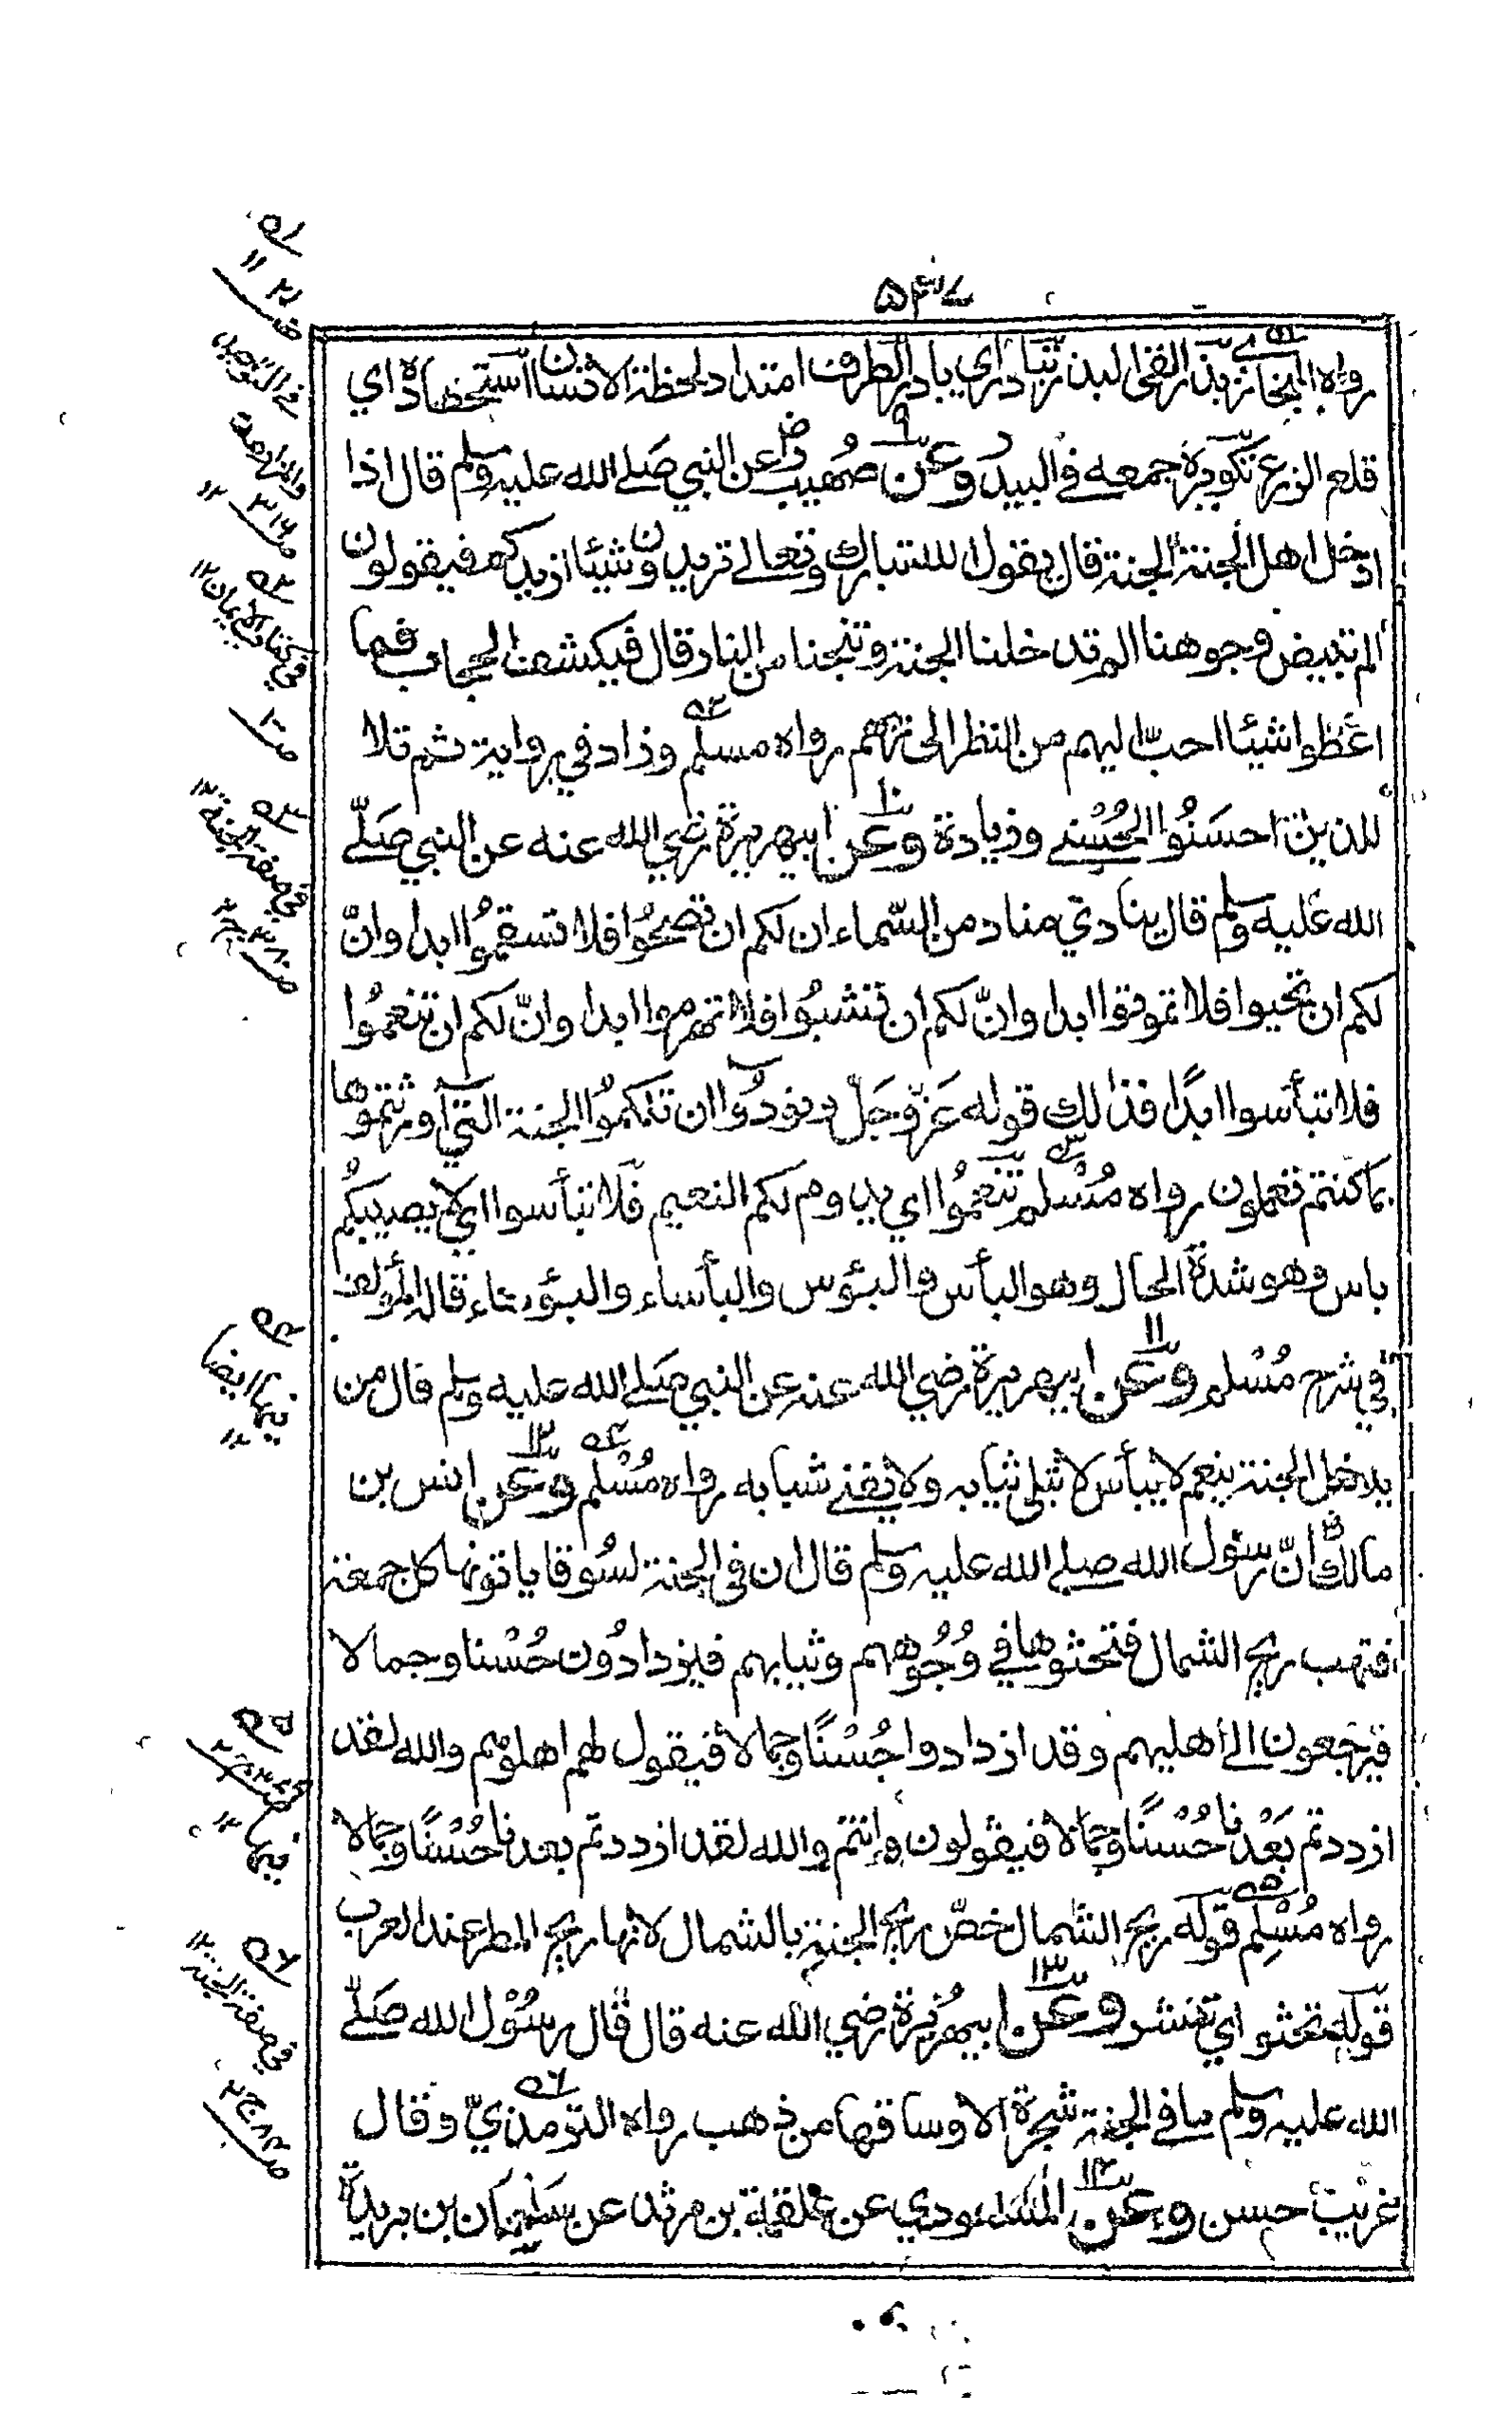 ۵۴۷
رواه البخاري بذر القى البذر تبادر اي بادر الطرف امتداد لحظة الانسان استحضاده اي
قلع الزرع تكويره جمعه في البيدر وعن صُهيب رض عن النبي صَلے الله عليه وسلم قال اذا
ادخل اهل الجنة الجنة قال يقول الله تبارك وتعالے تريدون شيئا ازيدكم فيقولون
الم تبيض وجوهنا الم تدخلنا الجنة وتنجنا من النار قال فيكشف الحجاب فما
اعطوا شيئا احبّ اليهم من النظر الى ربهم رواه مسلم وزاد في رواية ثم تلا
للذين احسَنُوا الحُسْنے وزيادة وعن ابيهريرة رضي الله عنه عن النبي صَلّے
الله عليه وسلم قال ينادي مناد من السّماء ان لكم ان تصحُّوا فلا تسقمُوا ابدا وانّ
لكم ان تحيوا فلا تموتوا ابدا وانّ لكم ان تشبُوا فلا تهرموا ابدا وانّ لكم ان تنعمُوا
فلا تبأسوا ابدًا فذلك قوله عَزّ وجَلّ ونودُوا ان تلكمُوا الجنة التي اورثتموها
بما كنتم تعملون رواه مُسْلم تنعمُوا اي يدوم لكم النعيم فلا تبأسوا اي لا يصيبكُم
باس وهو شدة الحال وهو البأس والبؤس والبأساء والبؤساء قاله المؤلف
في شرح مُسْلم وعن ابيهريرة رضي الله عنه عن النبي صَلے الله عليه وسلم قال من
يدخل الجنة ينعم لا يبأس لا تبلى ثيابه ولا يفنے شبابه رواه مُسْلم وعن انس بن
مالك رض انّ رسُول الله صلے الله عليه وسلم قال ان في الجنة لسُوقا ياتونها كل جمعة
فتهب ريح الشمال فتحثوها في وُجُوههم وثيابهم فيزدادُون حُسْنا وجمالا
فيرجعون الى اهليهم وقد ازدادوا حُسْنًا وجمالا فيقول لهم اهلوهم والله لقد
ازددتم بَعْدنا حُسْنًا وجمالا فيقولون وانتم والله لقد ازددتم بعدنا حُسْنًا وجمالا
رواه مُسْلم قوله ريح الشمال خصّ ريح الجنة بالشمال لانها ريح المطر عند العرب
قوله تحثو اي تنشر وعن ابيهُريرة رضي الله عنه قال قال رسُوْل الله صَلّے
الله عليه وسلم ما في الجنة شجرة الا وساقها من ذهب رواه الترمذيّ وقال
غريب حسن وعن المسعودي عن علقمة بن مرثد عن سليمان بن بريدة
في كتاب الايمان ١٢
في صفة الجنة ١٢
فيها ايضا ١٢
فيها ١٢
في صفة الجنة ١٢